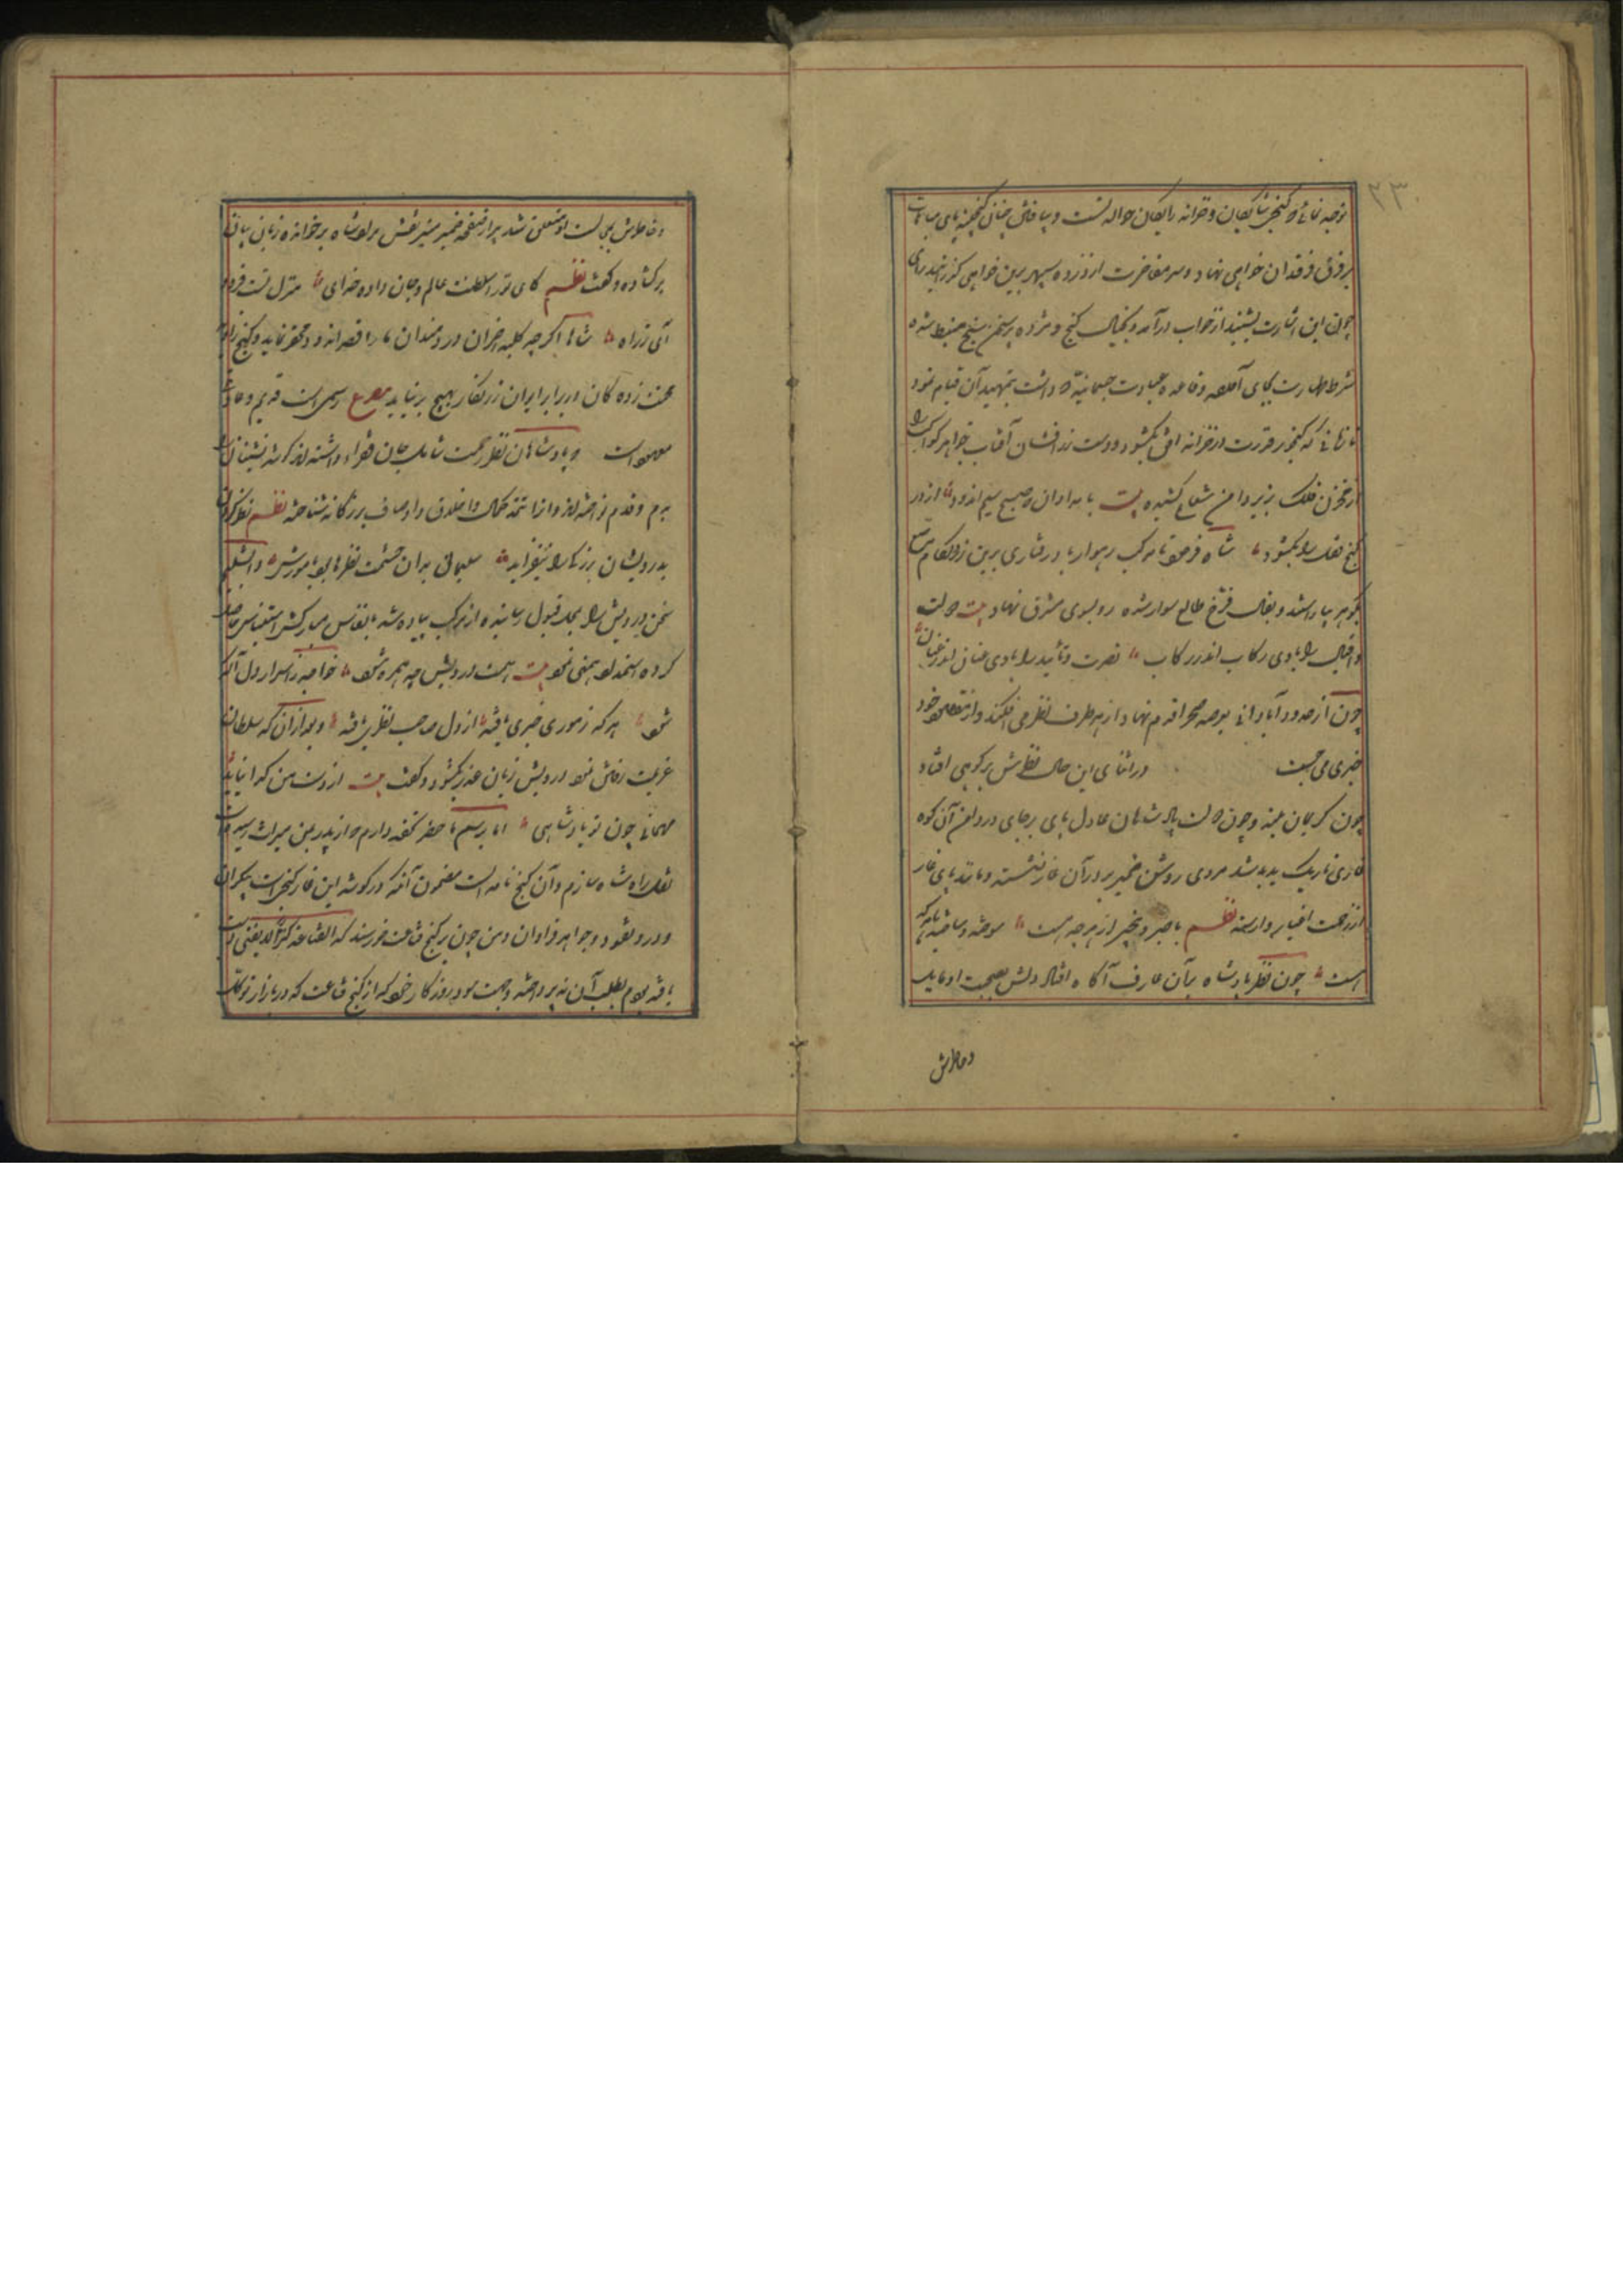 توجه نمائی که گنج شایگان و خزانه رایگان حواله تست و بیافتن چنان گنجینه پای مباهات
بر فرق فرقدان خواهی نهاد و سر مفاخرت از ذروه سپهر برین خواهی گذرانید
چون این بشارت بشنید از خواب درآمد و بخیال گنج و مژده پیر سخن سنج منبسط شده
شرط طهارت بجای آورده وظیفه عبادت که داشت بتمهید آن قیام نمود
تا زمانی که گنجور قدرت در خزانه افق بگشود و دست زرافشان آفتاب جواهر کواکب را
از مخزن فلک بزیر دامن شعاع کشیده بیت بامدادان که صبح سیم اندود از در
گنج قفل را بکشود شاه فرمود تا مرکب رهوار باد رفتاری بزین زر و لگام مرصع
بگوهر بیاراستند و بفال فرخ طالع سوار شده رو بسوی مشرق نهاد بیت دولت
و اقبال را بادی رکاب اندر رکاب نصرت و تأیید را بادی عنان اندر عنان
چون از حدود آبادانی بعرصه صحرا قدم نهاد از هر طرف نظر می افکند و از مقصود خود
خبری می جست در اثنای این حال نظرش بر کوهی افتاد
چون کریمان بلند و چون دولت پادشاهان عادل پای برجای در دامن آن کوه
غاری تاریک پدید شد مردی روشن ضمیر بر در آن غار نشسته و مانند یار غار
از زحمت اغیار وارسته نظم با خبر و بیخبر از هر چه هست سوخته و ساخته با هر که
است چون نظر پادشاه بآن عارف آگاه افتاد دلش بصحبت او مایل
و خاطرش
و خاطرش بمجالست او متعلق شد پیر از صفحه ضمیر منیر نقش مراد شاه برخوانده زبان بیان
برگشاده و گفت نظم کای تو را سلطنت عالم و جان داده خدای منزل تست فرود
آی ز راه شاها اگر چه کلبه احزان دردمندان ما را قصر اندود محقر نماید و کنج زاویه
محنت زدگان در برابر ایوان زرنگار بهیچ برنیاید مصرع رسمی است قدیم و عادت
معهود است که پادشاهان نظر رحمت شامل حال فقراء داشته اند و گوشه نشینان را
بدم و قدم نواخته اند و آنرا از تتمه کمال اخلاق و اوصاف بزرگانه شناخته نظم نظر کردن
بدرویشان بزرگی را بیفزاید سلیمان بدان حشمت نظرها بود با مورش دابشلیم
سخن درویش را بمحل قبول رسانیده از مرکب پیاده شد بانفاس مبارکش استیناس حاصل
کرده استمداد همتی نمود بیت همت درویش چو همره شود خواجه ز اسرار دل آگه
شود هر که ز موری خبری یافته از دل صاحب نظری یافته و بعد از آن که سلطان
عزیمت رفتن نمود درویش زبان عذر بگشود و گفت بیت از دست من گدا نیاید
مهمانی چون تو پادشاهی اما برسم ما حضر تحفه دارم که از پدر بمن میراث رسیده
نثار راه شاه سازم و آن گنج نامه است مضمون آنکه در گوشه این غار گنجی است بیکران
و در و نقود و جواهر فراوان و من چون بر گنج قناعت خرسند که القناعة کنز لا یفنی دست
یافته بودم بطلب آن نپرداختم و جهت سود روزگار خود که از گنج قناعت که در بازار توکل